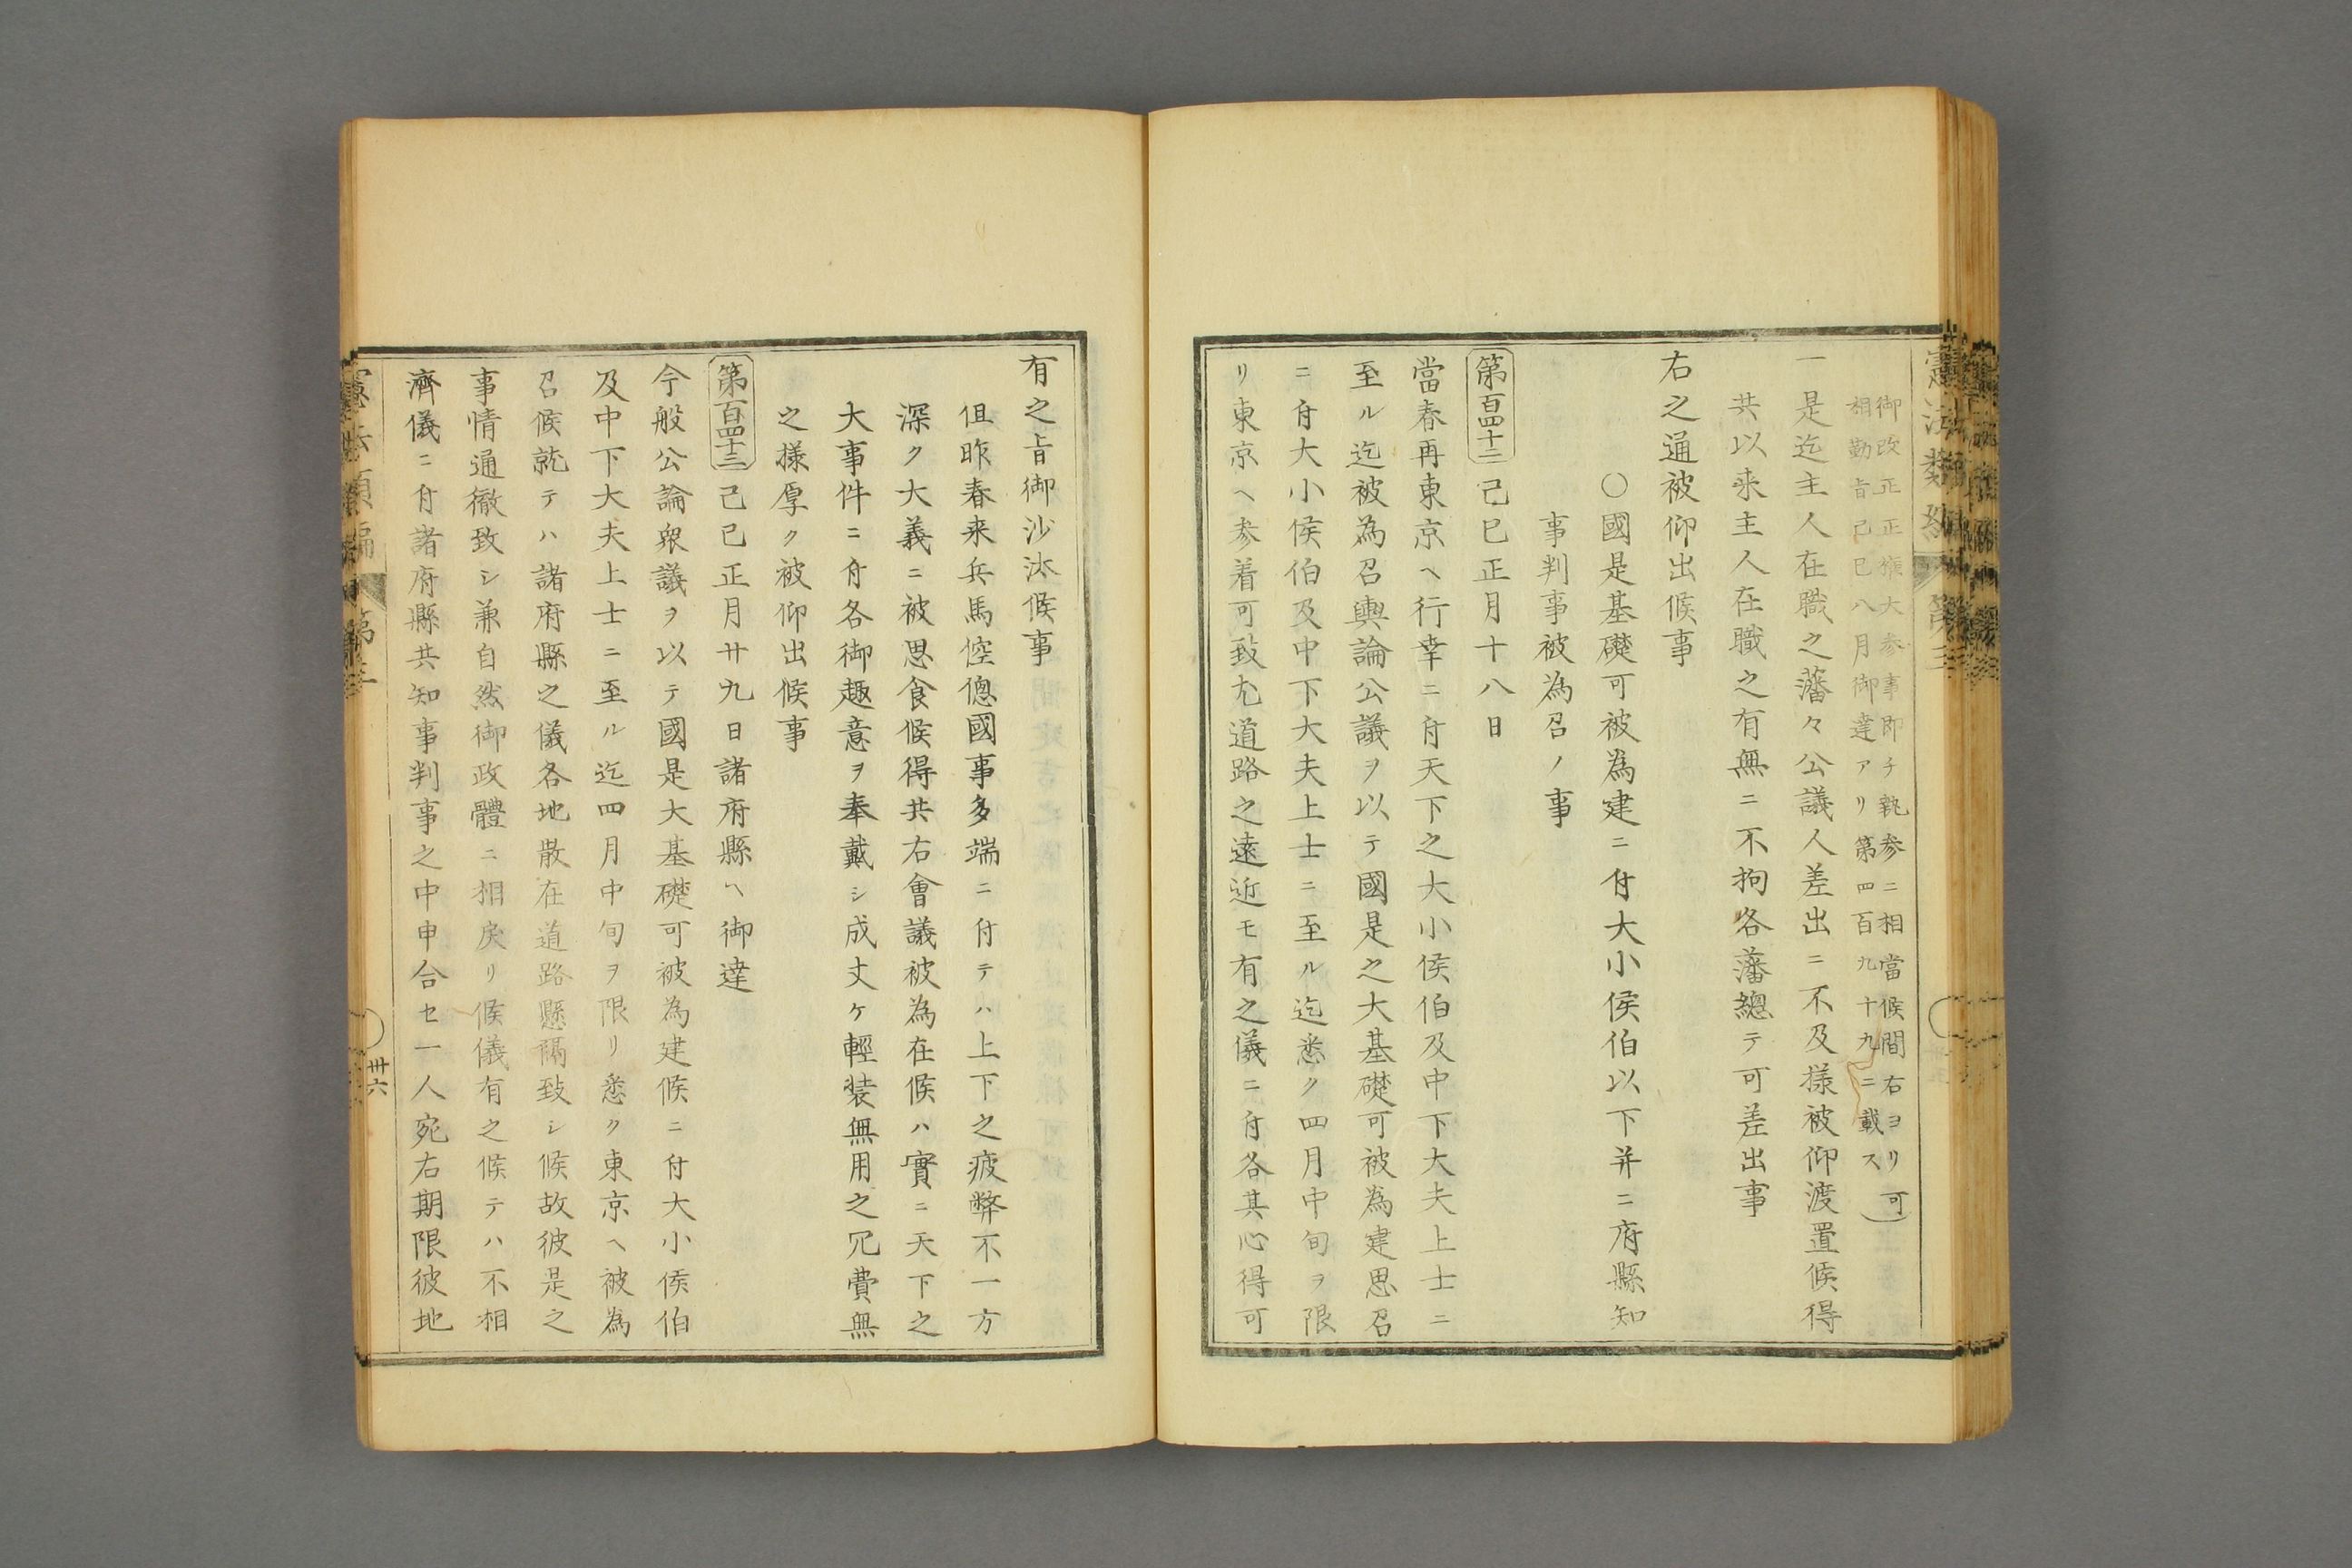 御改正正權大参事即チ執参ニ相當候間右ヨリ可
相勤旨己巳八月御達アリ第四百九十九ニ載ス)
一是迄主人在職之藩々公議人差出ニ不及様被仰渡置候得
共以来主人在職之有無ニ不拘各藩總テ可差出事
右之通被仰出候事
○國是基礎可被為建ニ付大小侯伯以下并ニ府縣知
事判事被為召ノ事
第百四十二 己巳正月十八日
當春再東京ヘ行幸ニ付天下之大小侯伯及中下大夫上士ニ
至ル迄被為召輿論公議ヲ以テ國是之大基礎可被為建思召
ニ付大小侯伯及中下大夫上士ニ至ル迄悉ク四月中旬ヲ限
リ東京ヘ参着可致尤道路之遠近モ有之儀ニ付各其心得可
有之旨御沙汰候事
但昨春来兵馬倥偬國事多端ニ付テハ上下之疲弊不一方
深ク大義ニ被思食候得共右會議被為在候ハ實ニ天下之
大事件ニ付各御趣意ヲ奉戴シ成丈ケ輕装無用之冗費無
之様厚ク被仰出候事
第百四十三 己巳正月廿九日諸府縣ヘ御達
今般公論衆議ヲ以テ國是大基礎可被為建候ニ付大小侯伯
及中下大夫上士ニ至ル迄四月中旬ヲ限リ悉ク東京ヘ被為
召候就テハ諸府縣之儀各地散在道路懸隔致シ候故彼是之
事情通徹致シ兼自然御政體ニ相戻リ候儀有之候テハ不相
濟儀ニ付諸府縣共知事判事之中申合セ一人宛右期限彼地
憲法類編 第三
卅六